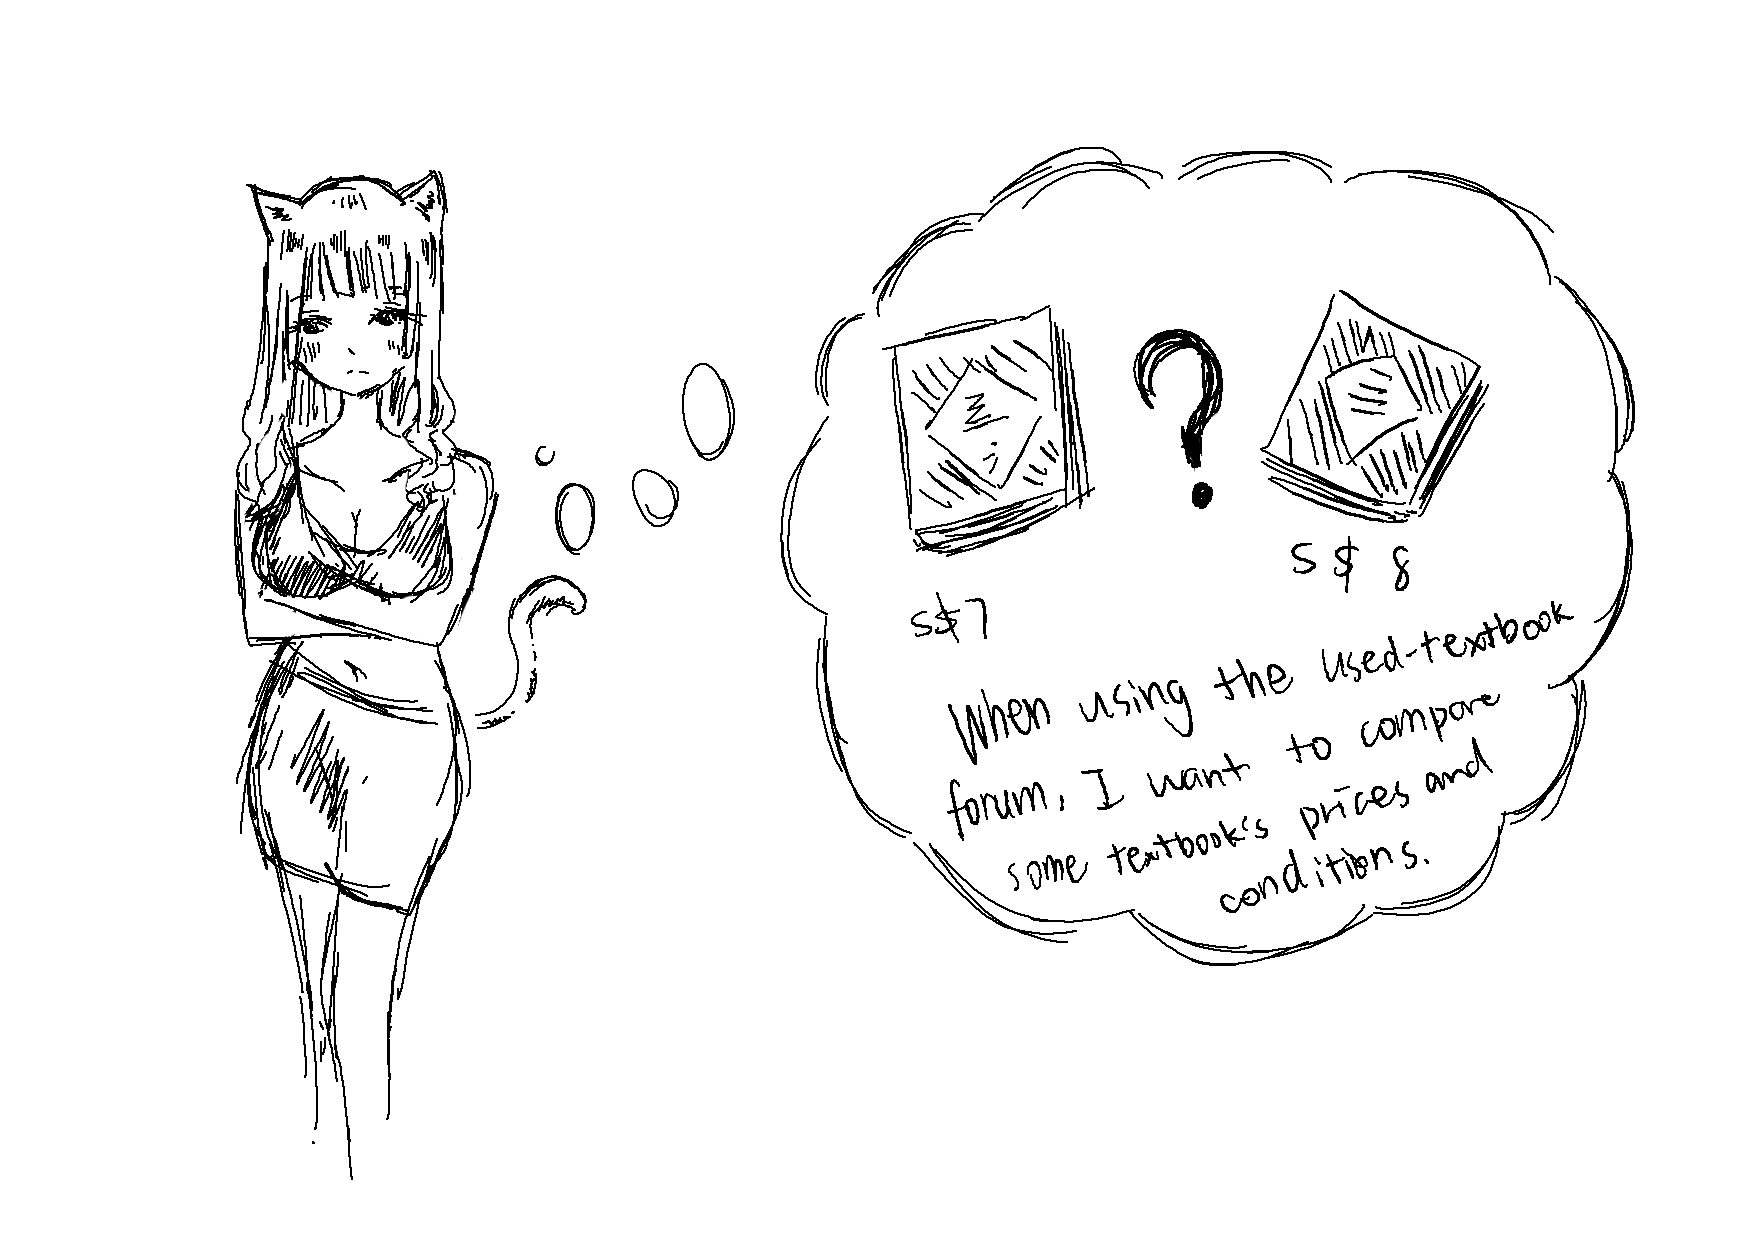 S$7
S$ 8
When using the used-textbook
forum, I want to compare
some textbook's prices and
conditions.